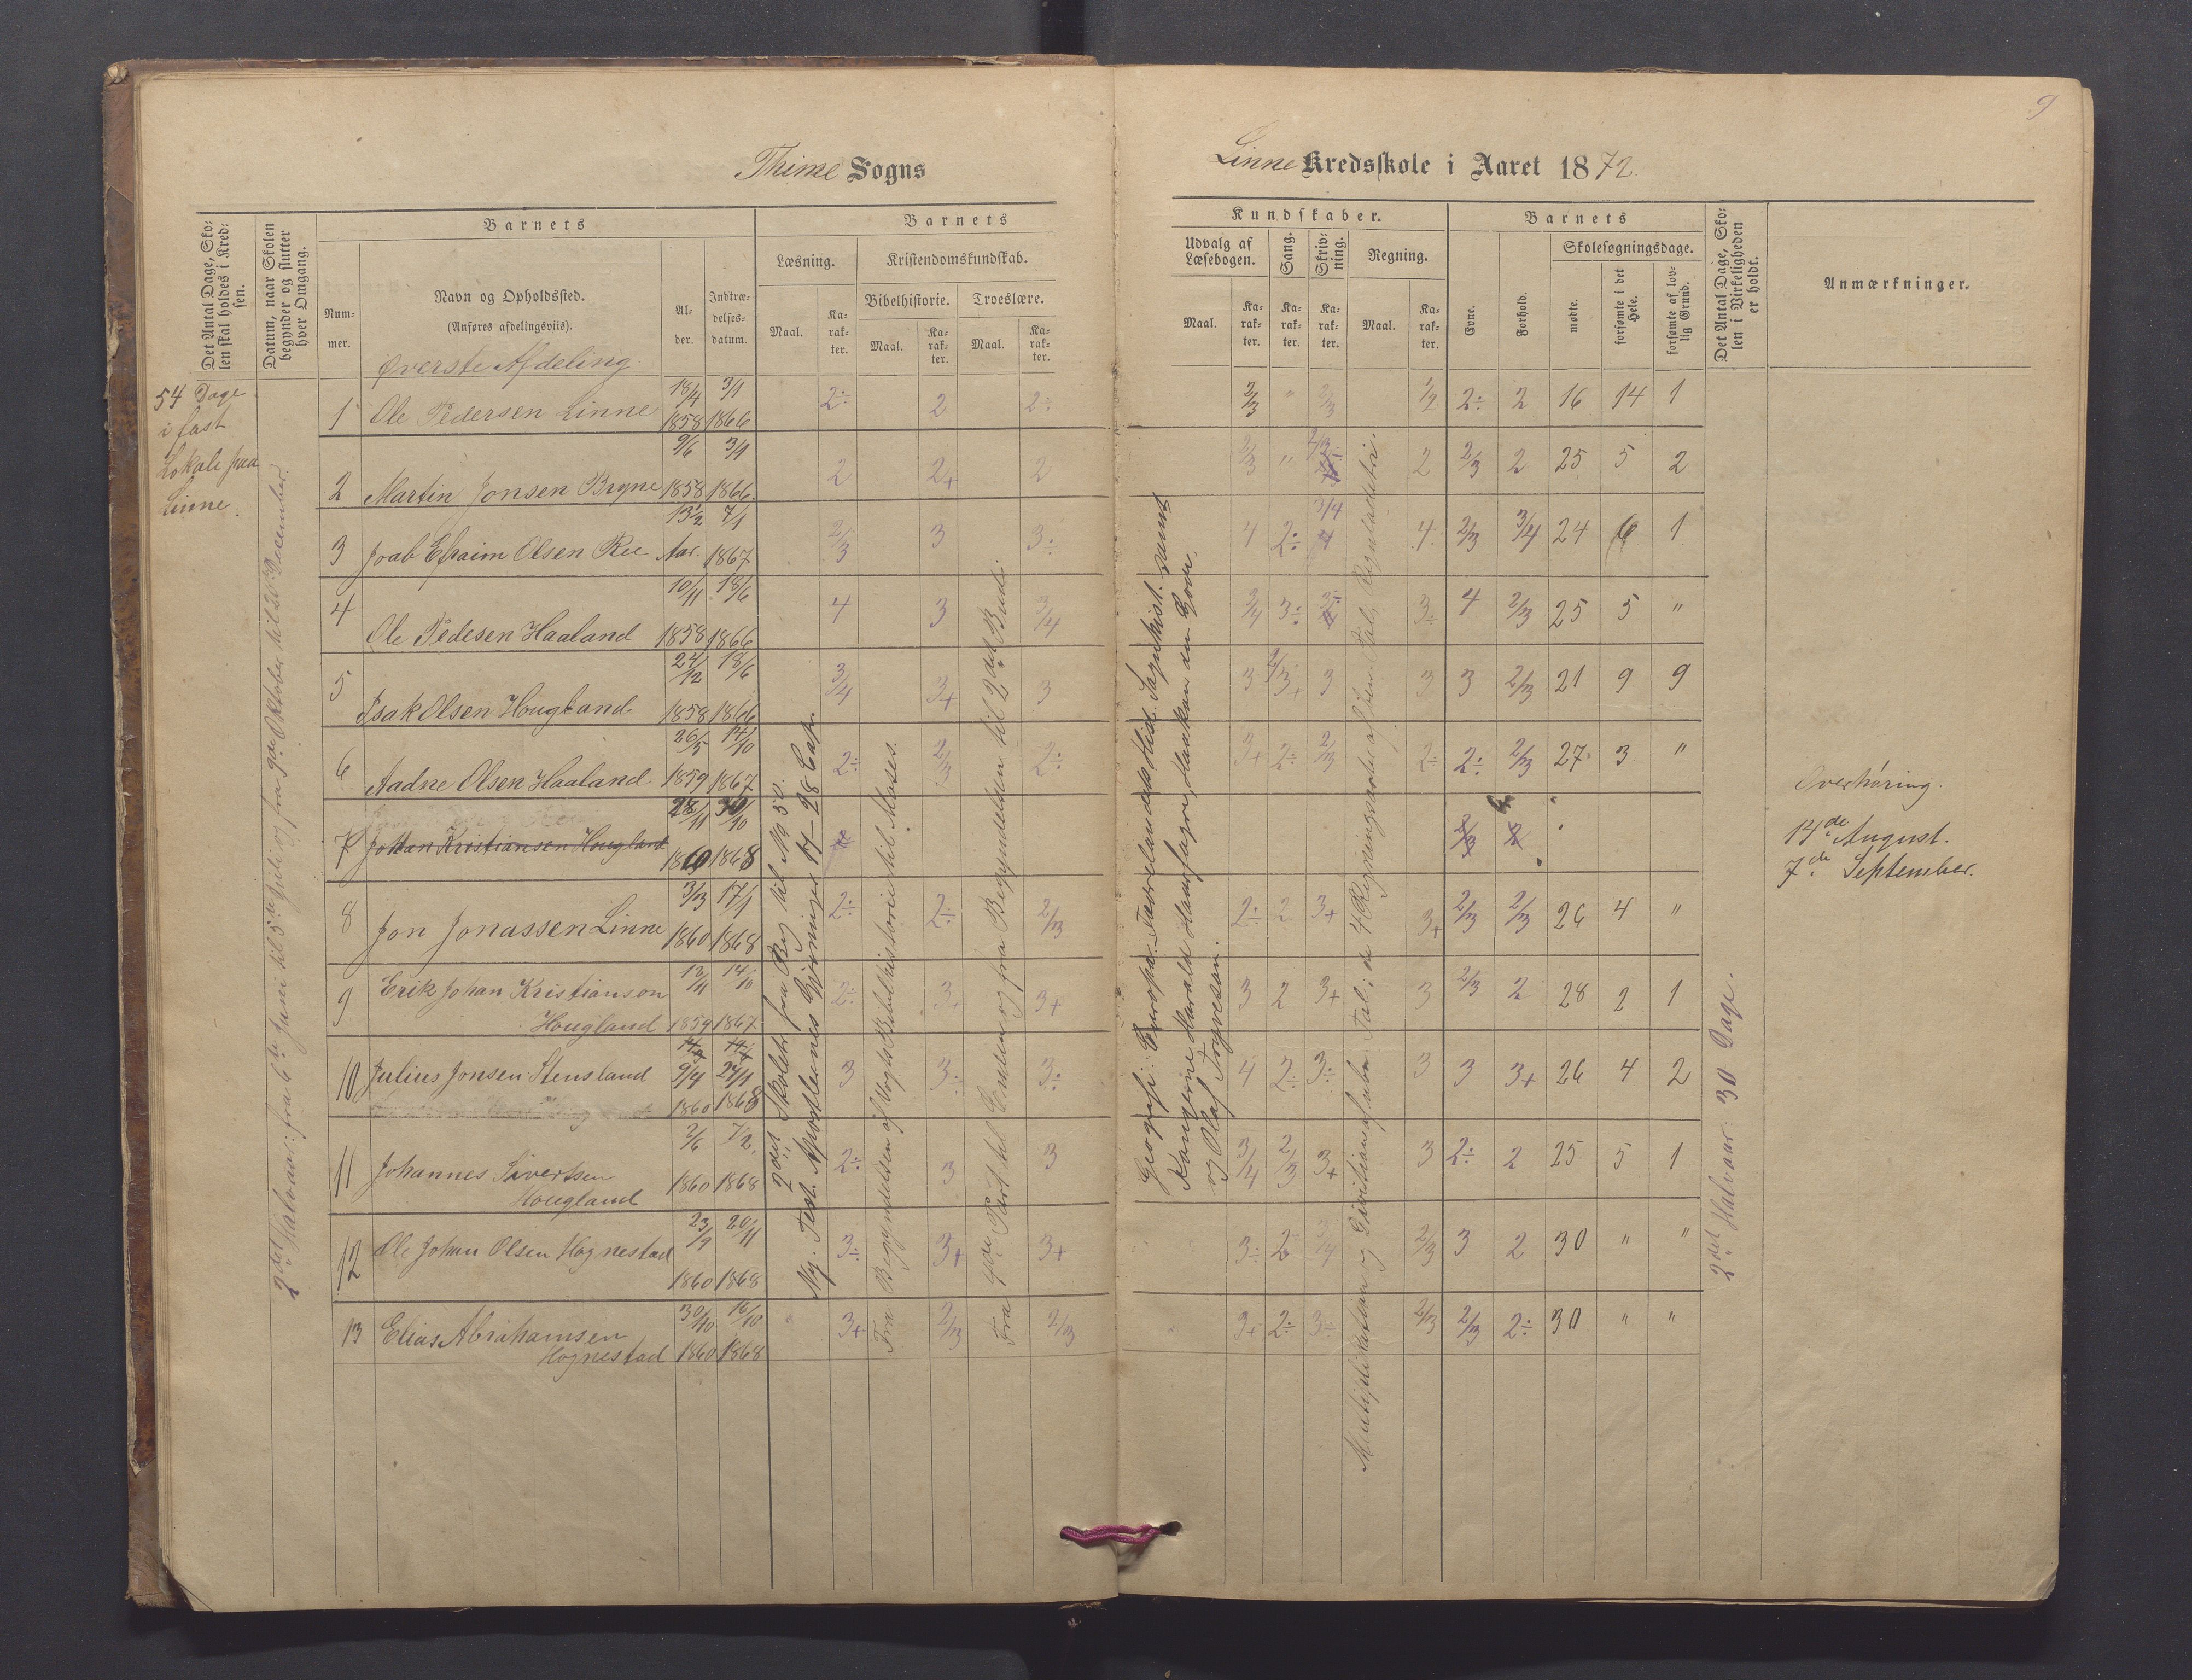 9
Thime Sogns
Linne Kredsskole i Aaret 1872
Det Antal Dage, Skolen skal holdes i Kredsen.
Datum, naar Skolen begynder og slutter hver Omgang.
Nummer.
Barnets
Navn og Opholdssted.
(Anføres afdelingsviis).
Alder.
Indtrædelsesdatum.
Barnets
Læsning.
Maal.
Karakter.
Kristendomskundskab.
Bibelhistorie.
Maal.
Karakter.
Troeslære.
Maal.
Karakter.
Kundskaber.
Udvalg af Læsebogen.
Maal.
Karakter.
Sang.
Karakter.
Skrivning.
Karakter.
Regning.
Maal.
Karakter.
Barnets
Evne.
Forhold.
Skolesøgningsdage.
mødte.
forsømte i det Hele.
forsømte af lovlig Grund.
Det Antal Dage, Skolen i Virkeligheden er holdt.
Anmærkninger.
Øverste Afdeling
54 Dage
i fast
Lokale paa
Linne.
2det Halvaar: fra 6te Juni til 5te Juli og fra 9de Oktober til 20de December.
1 Ole Pedersen Linne 18/4 1858 3/1 1866 2÷ 2 2÷ 2/3 " 2/3 1/2 2÷ 2 16 14 1
2 Martin Jonsen Bryne 9/6 1858 3/1 1866 2 2+ 2 2/3 " 2/3÷ 2 2/3 2 25 5 2
3 Joab Efraim Olsen Ree 13½ Aar. 7/1 1867 2/3 3 3÷ 4 2÷ 3/4 4 2/3 3/4 24 6 1
4 Ole Pedesen Haaland 10/11 1858 18/6 1866 4 3 3/4 3/4 3÷ 3÷ 4 2/3 25 5 "
5 Isak Olsen Hougland 24/12 1858 18/6 1866 3/4 3+ 3 3 2/3+ 3 3 3 2/3 21 9 9
6 Aadne Olsen Haaland 26/5 1859 14/10 1867 2÷ 2/3 2÷ 3+ 2÷ 2/3 2÷ 2÷ 2/3 27 3 "
7 Johan Kristiansen Hougland 28/11 1860 30/10 1868 2/3 2
8 Jon Jonassen Linne 3/3 1860 17/1 1868 2÷ 2÷ 2/3 2÷ 2 3+ 3+ 2/3 2/3 26 4 "
9 Erik Johan Kristianson
Hougland 12/11 1859 14/10 1867 2÷ 3+ 3+ 3 2 3+ 3 2/3 2 28 2 1
10 Julius Jonsen Stensland 9/4 1860 24/1 1868 3 3÷ 3÷ 4 2÷ 3÷ 3 3 3+ 26 4 2
11 Johannes Sivertsen
Hougland 2/6 1860 7/2 1868 2÷ 3 3 3/4 2/3 3+ 3 2÷ 2 25 5 1
12 Ole Johan Olsen Hognestad 23/9 1860 20/11 1868 3÷ 3+ 3+ 3÷ 2 3/4 2/3 3 2 30 " "
13 Elias Abrahamsen
Hognestad 30/10 1860 16/10 1868 3+ 2/3 2/3 3+ 2÷ 3÷ 2/3 2/3 2÷ 30 " "
2det Skoletr fra Beg til No 50.
Ny. Test. Apostlernes Gjerninger 17–28 Cap.
Fra Begyndelsen af Vogts Bibelhistorie til Moses.
Fra 4de Part til Enden og fra Begyndelsen til 2det Bud.
Geografi: Europa. Fædrelandets Hist. Sagnhist. samt
Kongerne Harald Haarfagre, Haakon den Gode
og Olaf Trygvesøn.
Multiplikation og Division af ube. Tal; de 4 Regningsarter af ben. Tal; Reguladetri.
2det Halvaar: 30 Dage.
Overhøring.
14de August.
7de September.